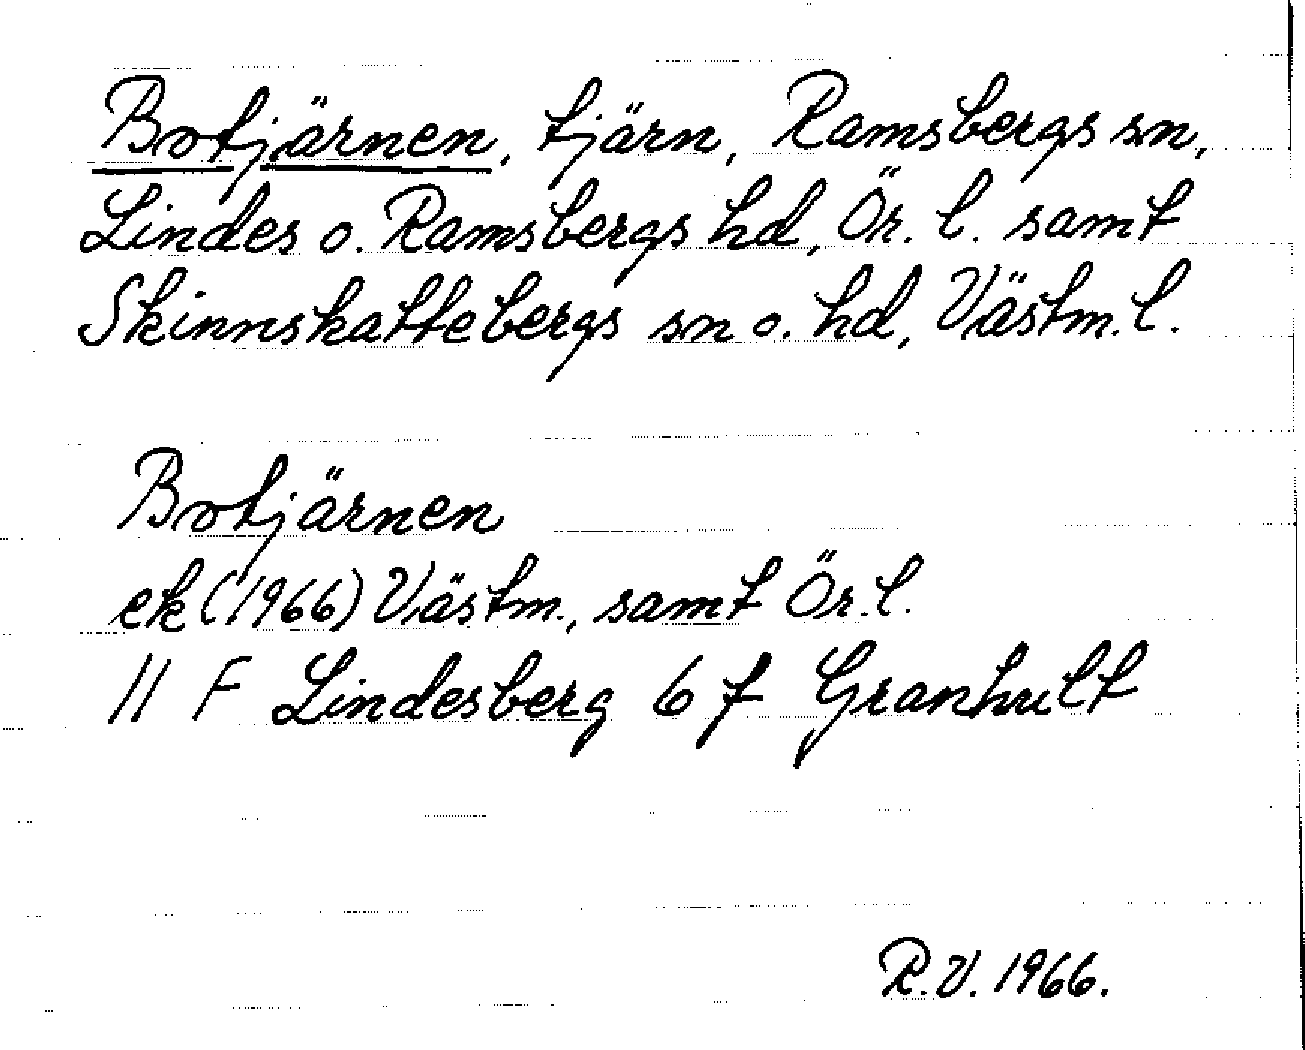 Botjärnen, tjärn, Ramsbergs sn,
Lindes o. Ramsbergs hd, Ör. l. samt
Skinnskattebergs sn o. hd, Västm. l.
Botjärnen
ek (1966) Västm., samt Ör. l.
11 F Lindesberg 6 f Granhult
R.V. 1966.